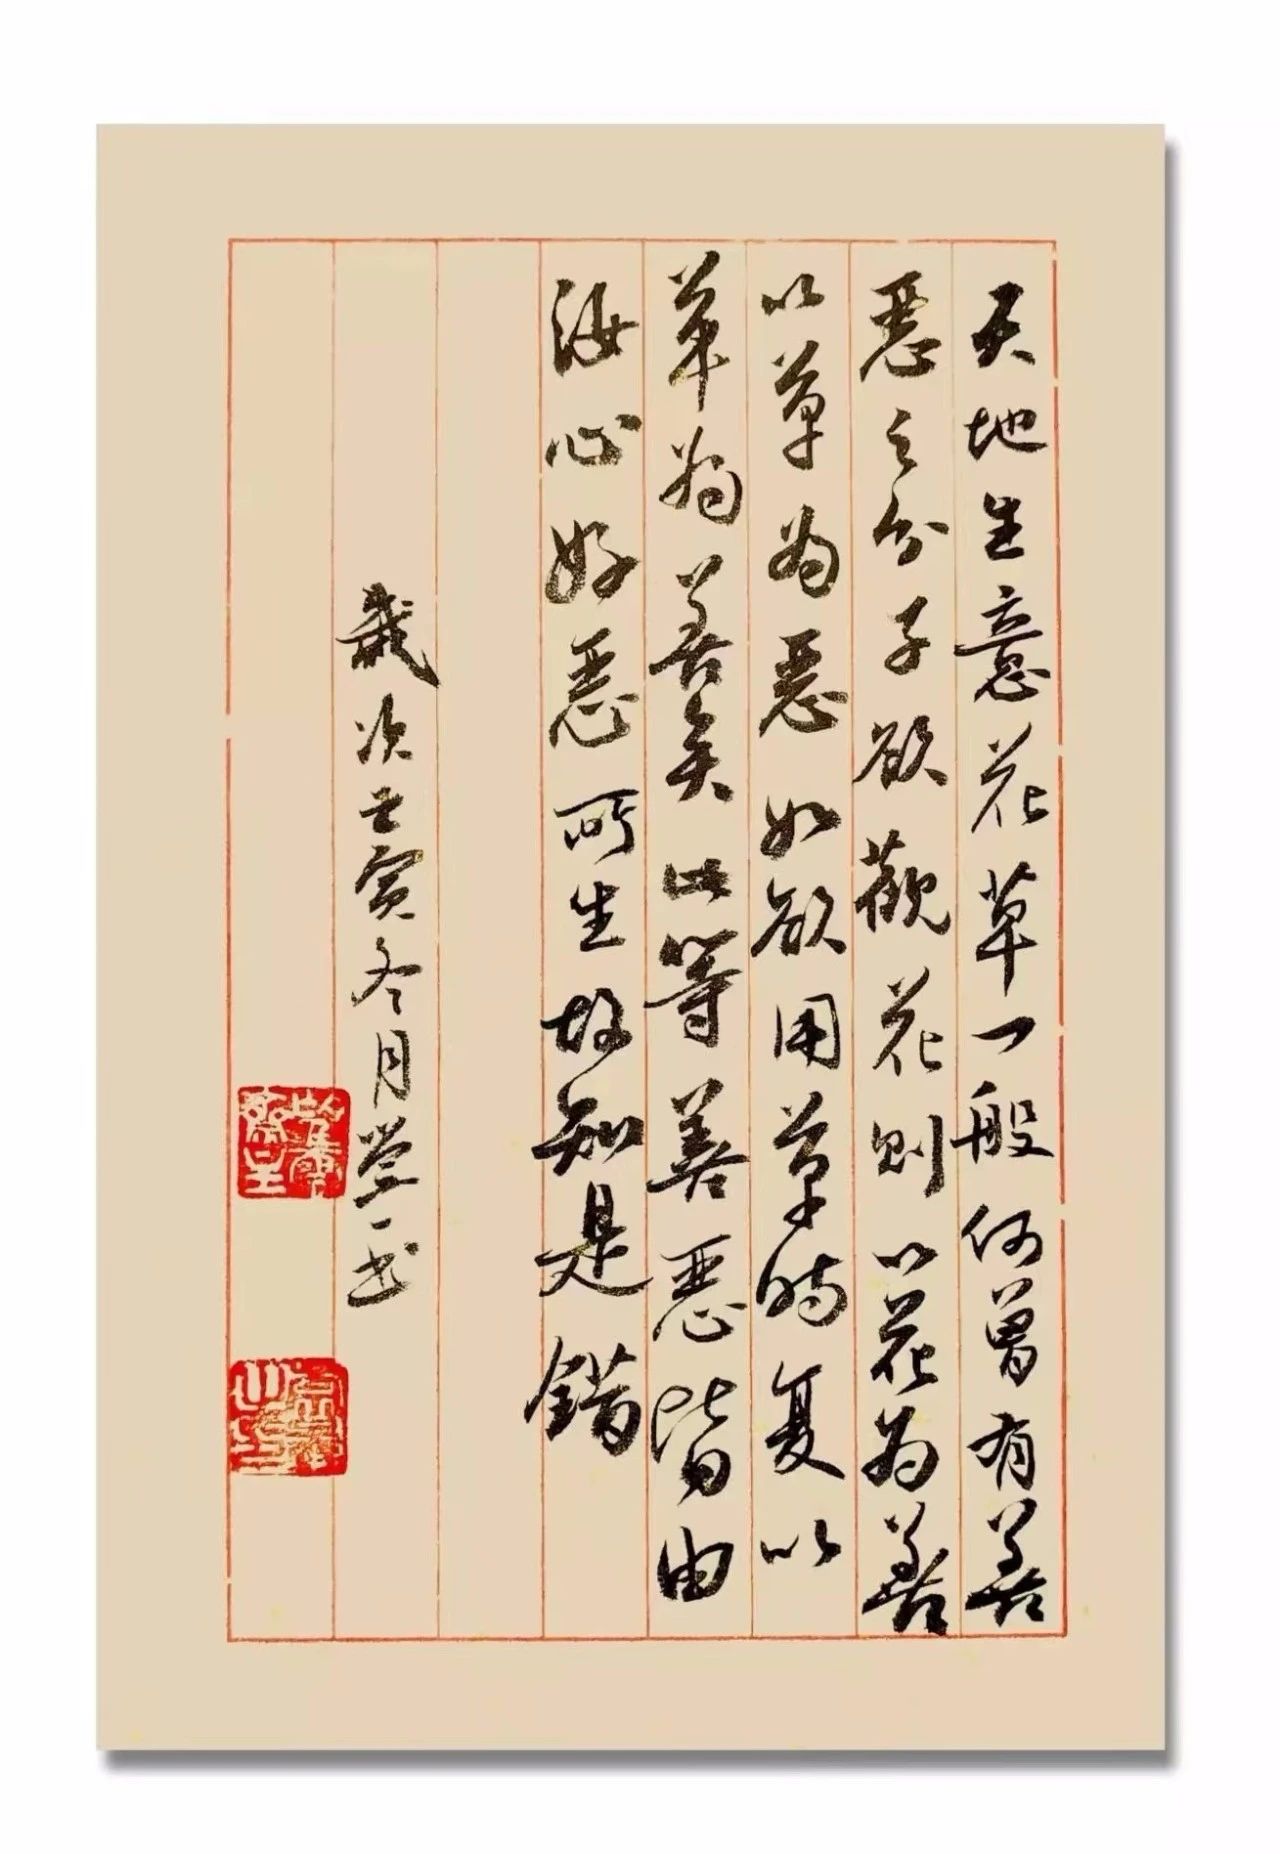 天地生意花草一般何曾有善
恶之分子欲觀花则以花为善
以草为恶如欲用草時复以
草为善矣此等善恶皆由
汝心好恶所生故知是錯
歲次壬寅冬月堂一书